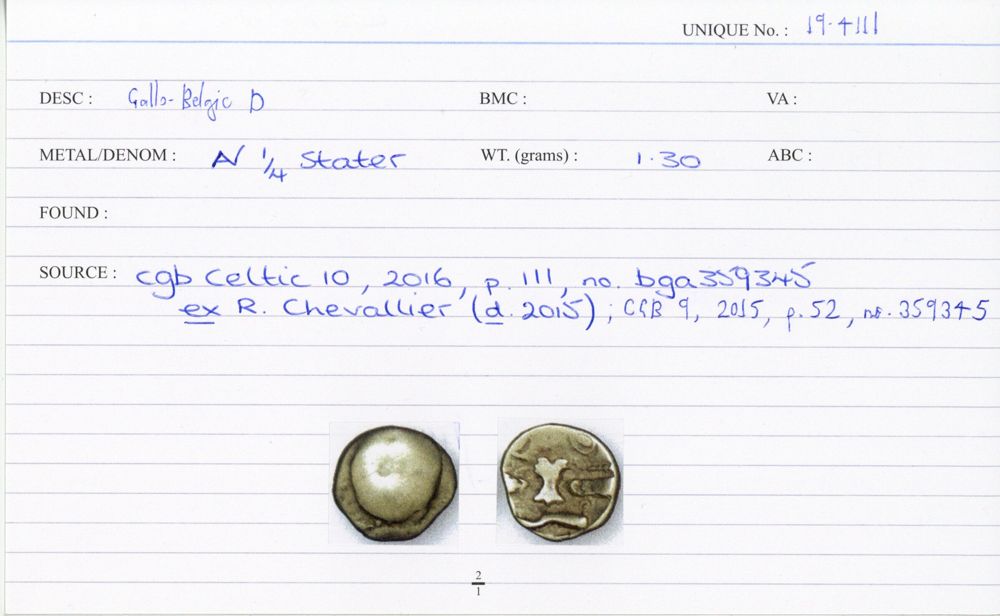 UNIQUE No. : 19.4111
DESC : Gallo-Belgic D BMC : VA :
METAL/DENOM : N 1/4 Stater WT. (grams) : 1.30 ABC :
FOUND :
SOURCE : cgb Celtic 10, 2016, p.111, no. bga359345
ex R. Chevallier (d. 2015); CGB 9, 2015, p.52, no. 359345
2
1